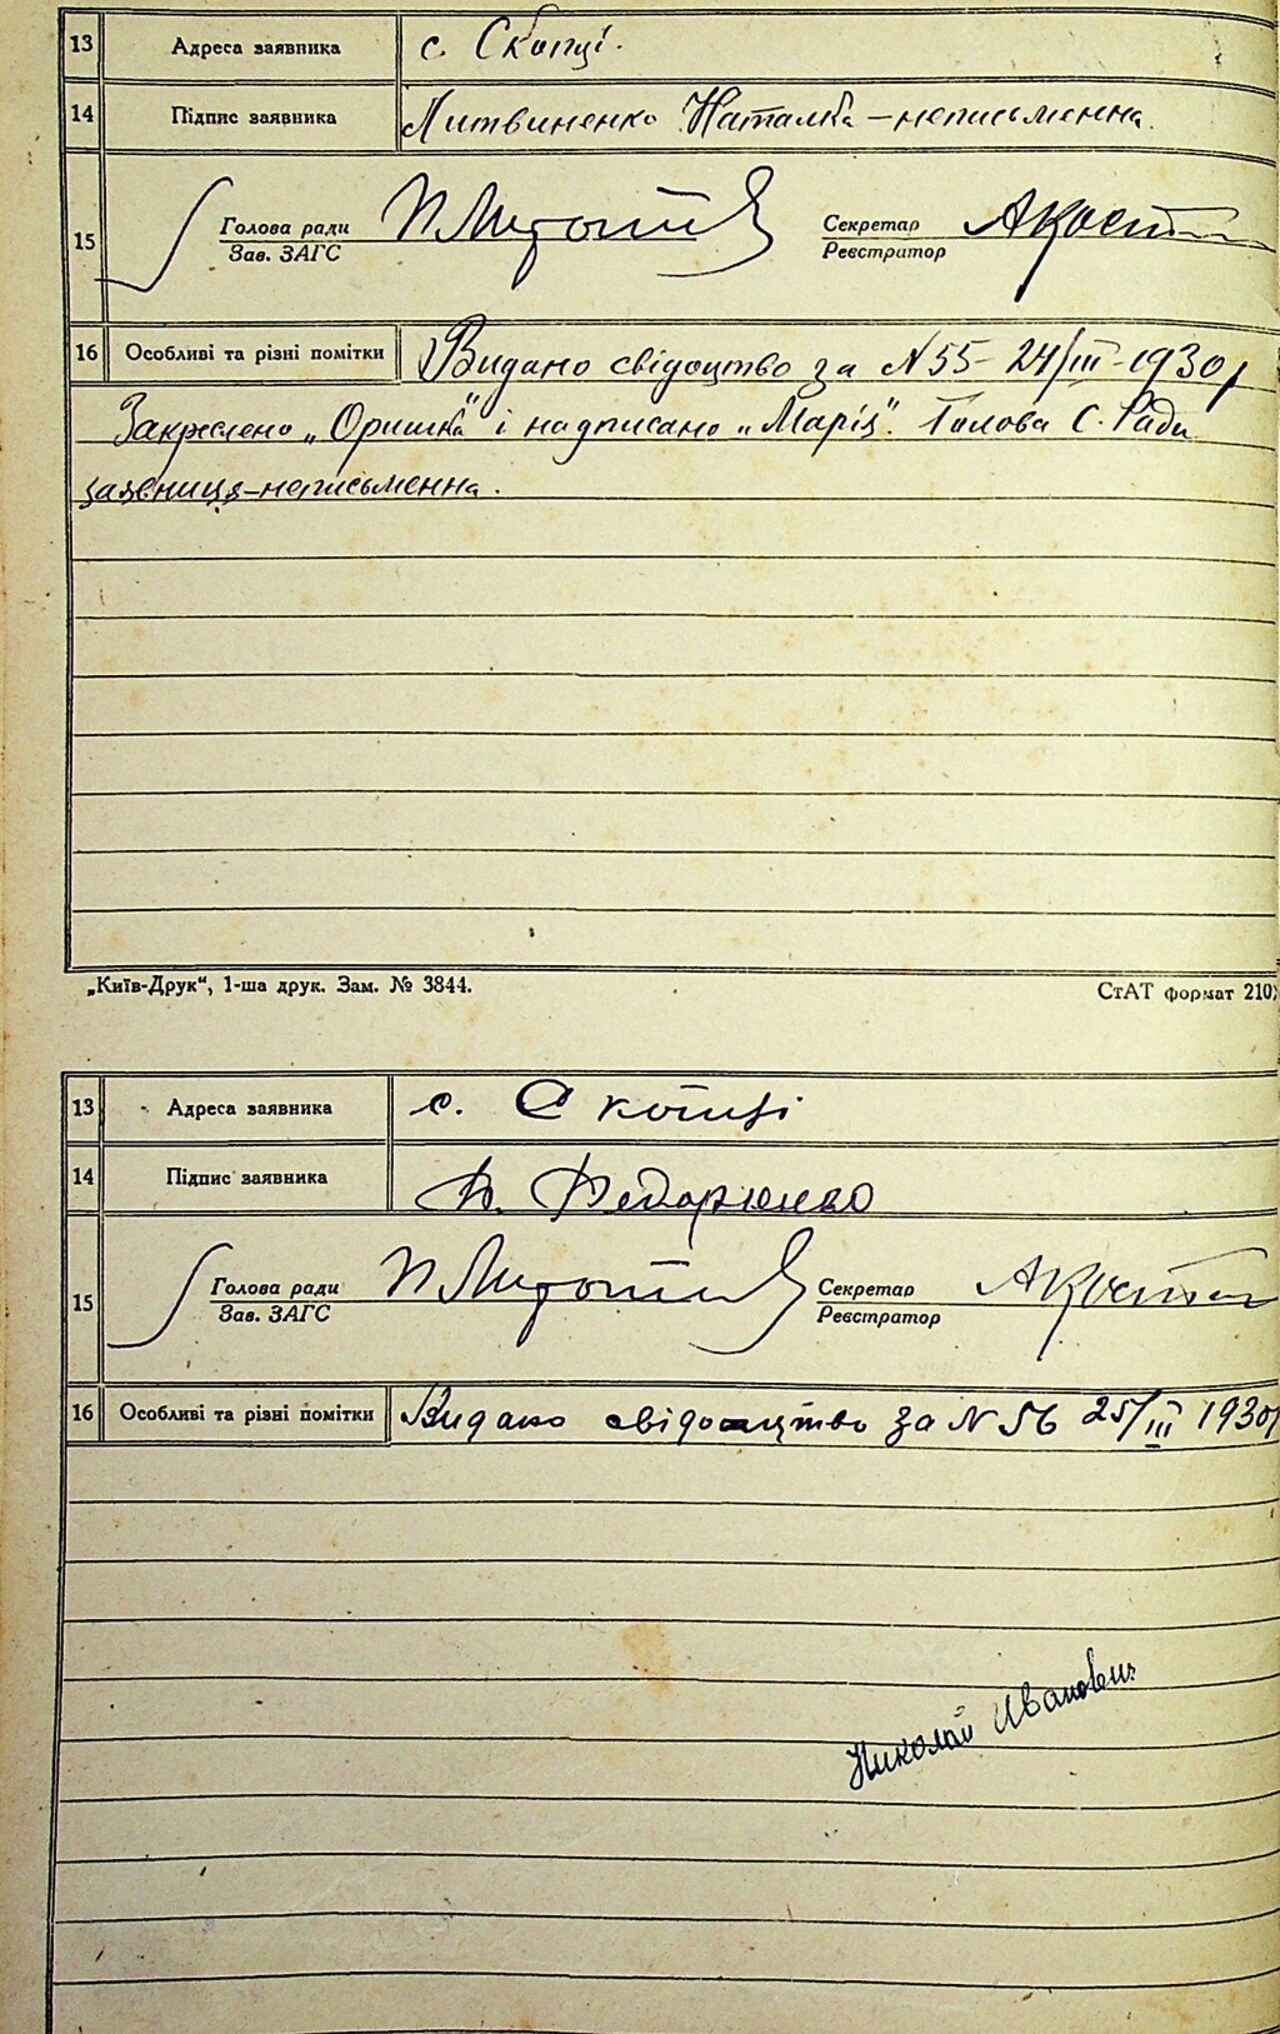 13 Адреса заявника с. Скопці.
14 Підпис заявника Литвиненко Наталка – неписьменна.
15 Голова ради Секретар
Зав. ЗАГС Реєстратор
16 Особливі та різні помітки Видано свідоцтво за N 55 – 24/III – 1930 р
Закреслено „Оришка" і надписано „Марія". Голова С. Ради
заявниця – неписьменна.
„Київ-Друк", 1-ша друк. Зам. № 3844. СтАТ формат 210
13 Адреса заявника с. Скопці
14 Підпис заявника Федоренко
15 Голова ради Секретар
Зав. ЗАГС Реєстратор
16 Особливі та різні помітки Видано свідоцтво за N 56 25/III 1930
Николай Иванович